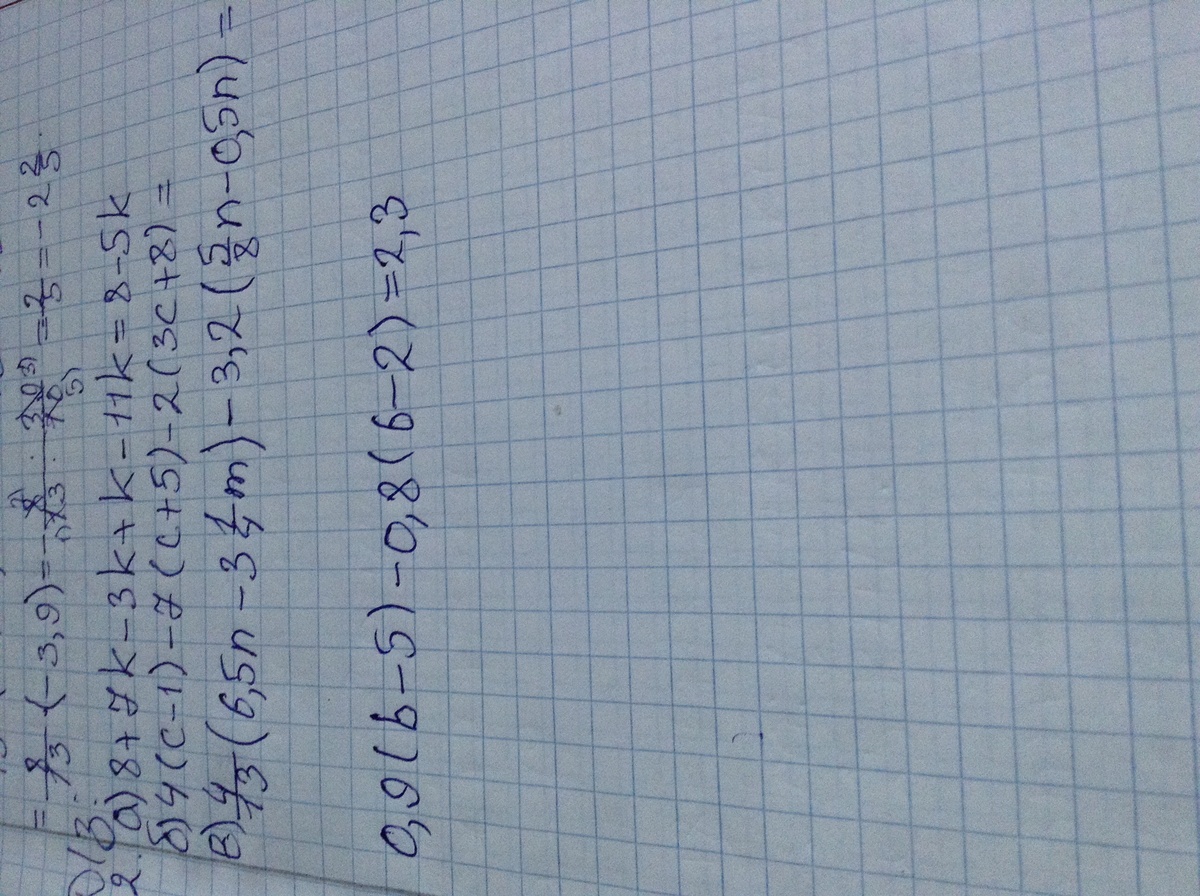 = 8/13 · (-3,9) = - 8/13 · 39/10 = 2/5 = -2 2/5.
2. а) 8 + 7k - 3k + k - 11k = 8 - 5k
б) 4(c-1) - 7(c+5) - 2(3c+8) =
в) 4/13 (6,5n - 3 1/4 m) - 3,2 (5/8 n - 0,5n) =
0,9(b-5) - 0,8(b-2) = 2,3